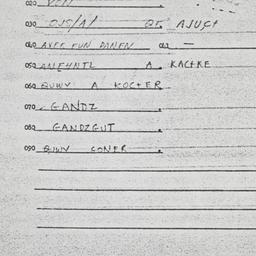 020 VON
030 OJS/A/ 05 AJUCT
040 AVEE FUN DANEN
050 ANEHNTL A KACHKE
060 BUWY A KOCTER
070 GANDZ
080 GANDZGUT
090 BUWY CONER